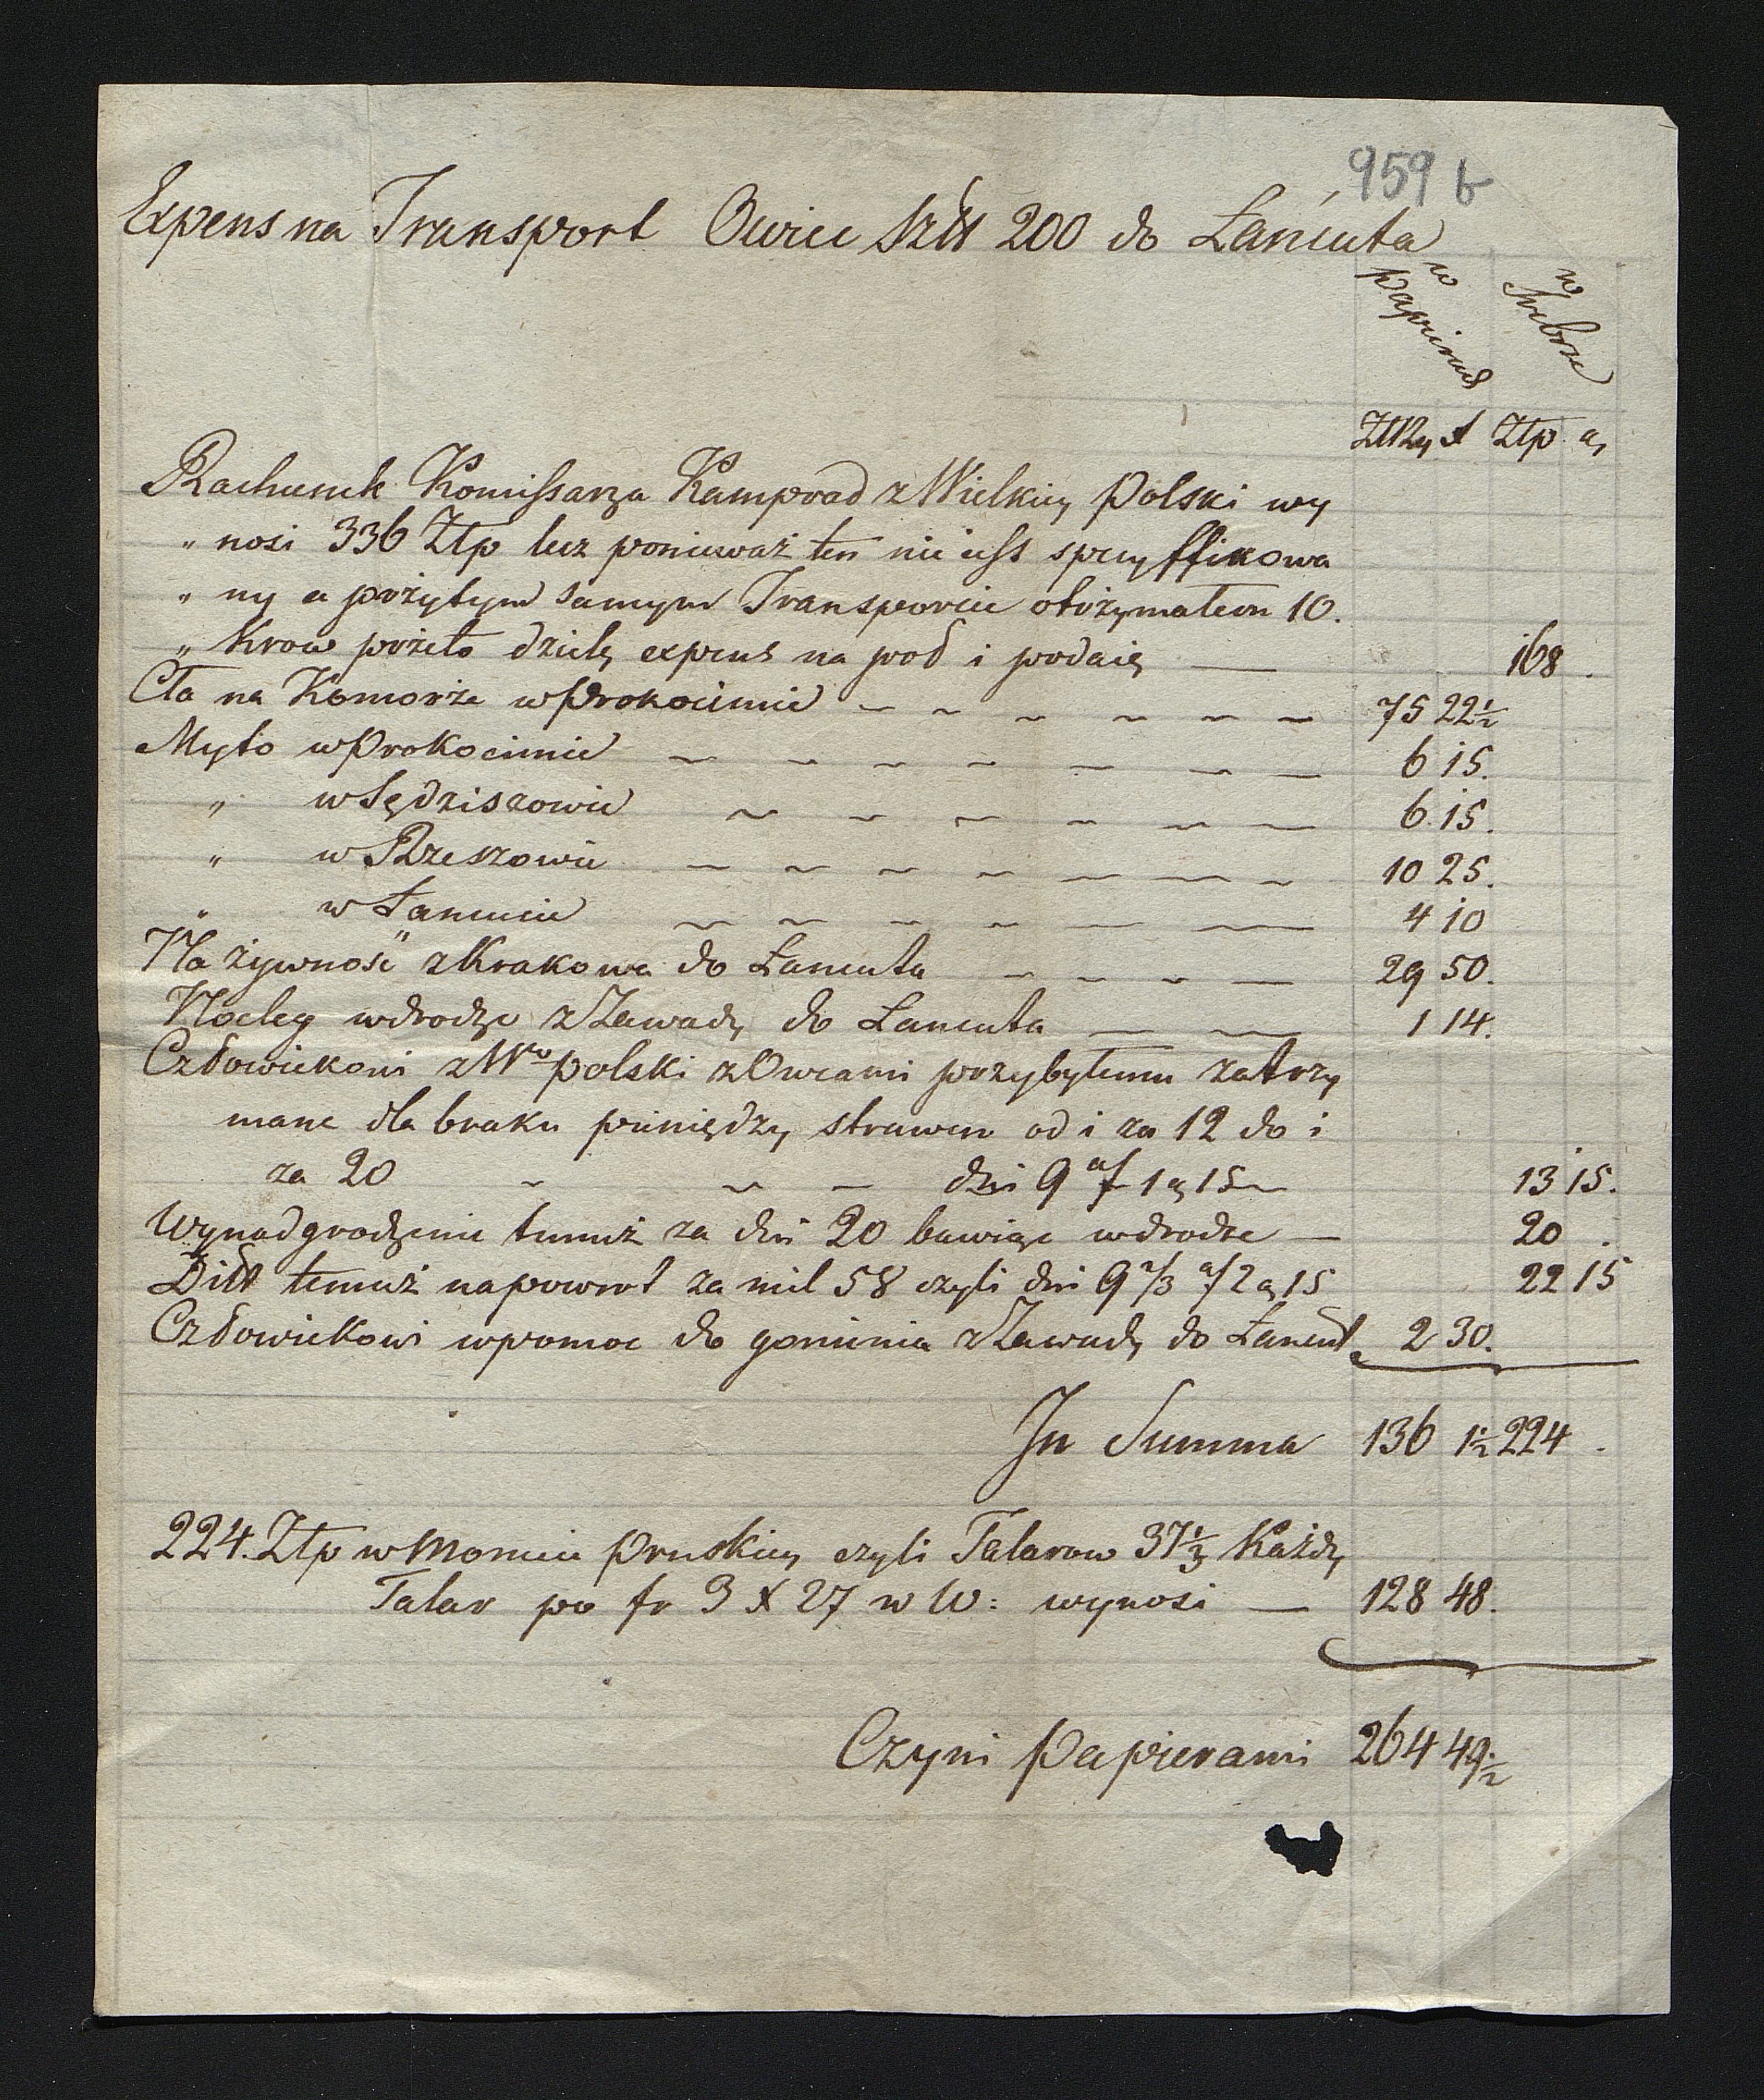 959 b
Expens na Transport Owiec Sztk 200 do Łańcuta
w papierach
w srebrze
ZłRy X Ztp gr
Rachunek Komissarza Kamprad z Wielkiey Polski wy
„ nosi 336 Ztp lecz ponieważ ten nie iest specyffikowa
„ ny a przytym samym Transporcie otrzymałem 10.
„ Krow przeto dzielę expens na pod i podaię — 168.
Cła na Komorze w Prokocimie 75 22½
Myto w Prokocimie 6 15.
„ w Sędziszowie 6 15.
„ w Rzeszowie 10 25.
„ w Łancucie 4 10
Na żywnosć z Krakowa do Łancuta 29 50.
Nocleg w drodze z Zawady do Łancuta 1 14.
Człowiekowi z Wo polski z Owcami przybytemu zatrzy
mane dla braku pieniędzy strawne od i za 12 do i
za 20 dni 9 af 1 gr 15 13 15.
Wynadgrodzenie temuż za dni 20 bawiąc w drodze — 20.
Ditt temuż na powrot za mil 58 czyli dni 9 2/3 af 2 gr 15 22 15
Człowiekowi w pomoc do gonienia z Zawady do Łancuta 2 30.
In Summa 136 1½ 224.
224. Ztp w Moncie Pruskiey czyli Talarow 37⅓ Każdy
Talar po fr 3 X 27 w W: wynosi — 128 48.
Czyni Papierami 264 49½